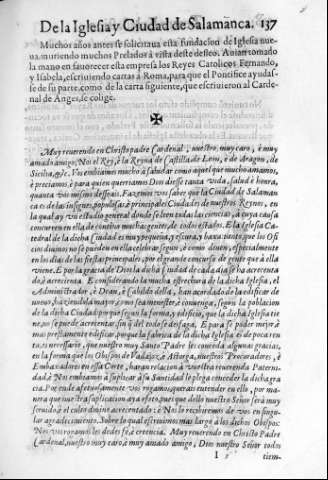 De la Iglesia y Ciudad de Salamãnca. 137
Muchos años antes se solicitaua esta fundacion de Iglesia nue-
ua muriendo muchos Prelados à vista deste desseo. Auian tomado
la mano en fauorecer esta empresa los Reyes Catolicos Fernando,
y Isabela, escriuiendo cartas à Roma, para que el Pontifice ayudas-
se de su parte, como de la carta siguiente, que escriuieron al Carde-
nal de Angers, se colige.
Muy reuerendo en Christo padre Cardenal, nuestro, muy caro, è muy
amado amigo. Nos el Rey, è la Reyna de Castilla, de Leon, è de Aragon, de
Sicilia, &c. Vos embiamos mucho à saludar como aquel que mucho amamos,
è preciamos, è para quien querriamos Dios diesse tanta vida, salud è honra,
quanta vos mismo desseais. Fazemos vos saber que la Ciudad de Salaman
ca es de las insignes, populosas, è principales Ciudades de nuestros Reynos, en
la qual ay vn estudio general donde se leen todas las ciencias, à cuya causa
concurren en ella de contino muchas gentes, de todos estados. E la Iglesia Ca-
tedral de la dicha Ciudad es muy pequeña, y escura, y baxa tanto, que los Ofi
cios diuinos no se pueden en ella celebrar segun è como deuen, especialmente
en los dias de las fiestas principales, por el grande concurso de gente que à ella
viene. E por la gracia de Dios la dicha Ciudad de cada dia se ha acrecenta
do, è acrecienta. E considerando la mucha estrechura de la dicha Iglesia, el
Administrador, è Dean, è Cabildo della, han acordado de la edificar de
nueuo, haziendola mayor, como sea menester, è conuenga, segun la poblacion
de la dicha Ciudad: porque segun la forma, y edificio, que la dicha Iglesia tie
ne, no se puede acrecentar, sin que del todo se desaga. E para se poder mejor è
mas prestamente edificar, porque la fabrica de la dicha Iglesia es de poca ren
ta, es necessario, que nuestro muy Santo Padre les conceda algunas gracias,
en la forma que los Obispos de Vadajoz, è Astorga, nuestros Procuradores, è
Embaxadores en essa Corte, haran relacion à vuestra reuerenda Paterni-
dad, è Nos embiamos à suplicar à su Santidad le plega conceder la dicha gra
cia. Por ende afetuosamente vos rogamos, querais entender en ello, por ma-
nera que nuestra suplicacion aya efeto, pues que dello nuestro Señor serà muy
seruido, è el culto diuino acrecentado: è Nos lo recibiremos de vos en singu-
lar agradecimiento. Sobre lo qual escriuimos mas largo à los dichos Obispos:
Nos vos rogamos les dedes fe, è creencia. Muy reuerendo en Christo Padre
Cardenal, nuestro muy caro, è muy amado amigo, Dios nuestro Señor todos
I
tiem-